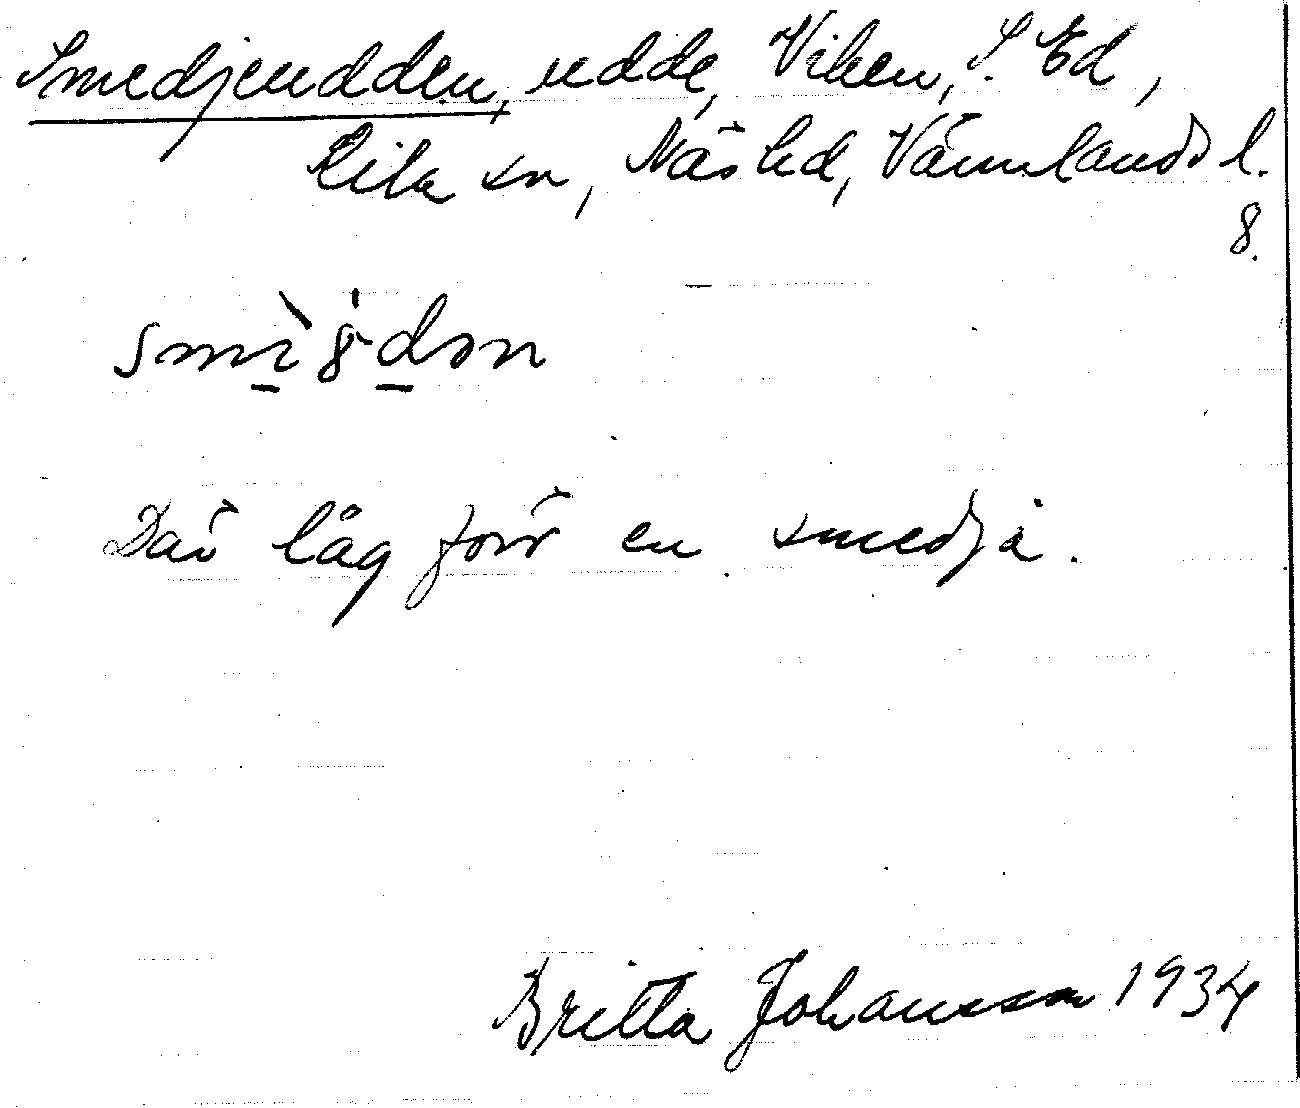 Smedjeudden, udde, Viken, S. Ed,
Kila sn, Näs hd, Värmlands l.
8.
Där låg förr en smedja.
Britta Johansson 1934